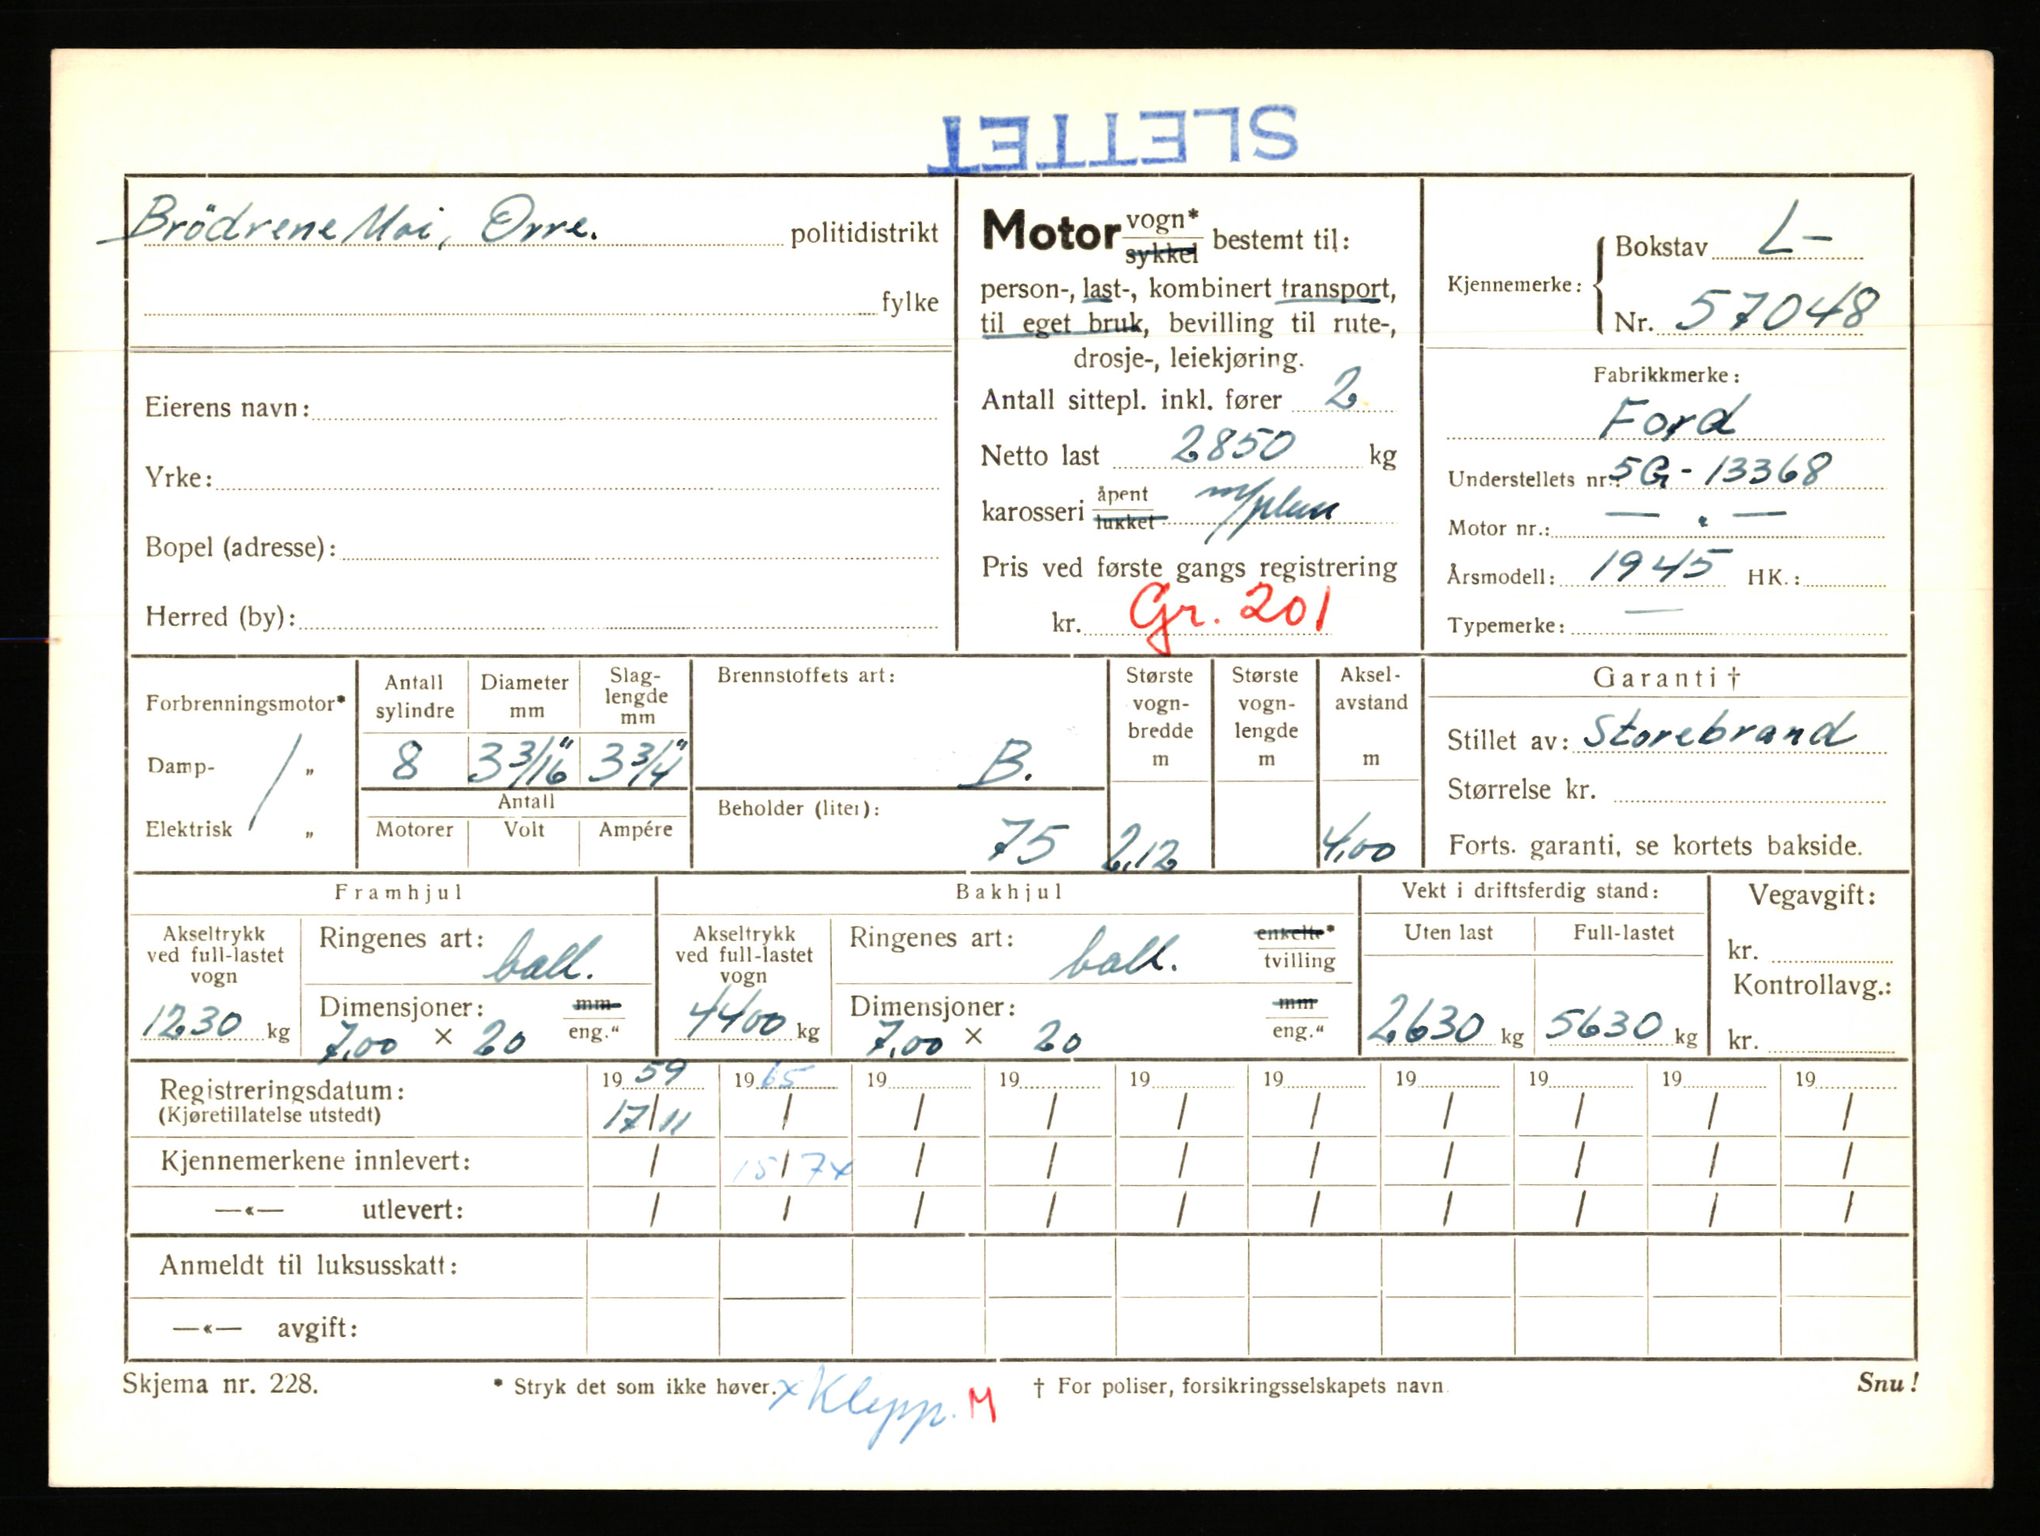 SLETTET
Brödrene Moi, Orre. politidistrikt
fylke
Eierens navn:
Yrke:
Bopel (adresse):
Herred (by):
Motor vogn* sykkel bestemt til:
person-, last-, kombinert transport,
til eget bruk, bevilling til rute-,
drosje-, leiekjøring.
Antall sittepl. inkl. fører 2
Netto last 2850 kg
karosseri åpent lukket m/plan
Pris ved første gangs registrering
kr. Gr. 201
Kjennemerke: Bokstav L-
Nr. 57048
Fabrikkmerke:
Ford
Understellets nr.: 5G-13368
Motor nr.: — " —
Årsmodell: 1945 HK.:
Typemerke: —
Forbrenningsmotor*
Damp- "
Elektrisk "
Antall sylindre 8
Diameter mm 3 3/16"
Slag-lengde mm 3 3/4"
Antall
Motorer Volt Ampére
Brennstoffets art:
B.
Beholder (liter):
75
Største vogn-bredde m 2,12
Største vogn-lengde m
Aksel-avstand m 4,00
Garanti †
Stillet av: Storebrand
Størrelse kr.
Forts. garanti, se kortets bakside.
Framhjul
Akseltrykk ved full-lastet vogn 1230 kg
Ringenes art: ball.
Dimensjoner: mm eng."
7,00 × 20
Bakhjul
Akseltrykk ved full-lastet vogn 4400 kg
Ringenes art: ball. enkelte* tvilling
Dimensjoner: mm eng."
7,00 × 20
Vekt i driftsferdig stand:
Uten last Full-lastet
2630 kg 5630 kg
Vegavgift:
kr.
Kontrollavg.:
kr.
Registreringsdatum: 19 59 19 65 19 19 19 19 19 19 19 19
(Kjøretillatelse utstedt) 17/11 / / / / / / / / /
Kjennemerkene innlevert: / 15/7x / / / / / / / /
—«— utlevert: / / / / / / / / / /
Anmeldt til luksusskatt:
—«— avgift:
Skjema nr. 228. * Stryk det som ikke høver. x Klepp. M † For poliser, forsikringsselskapets navn Snu!